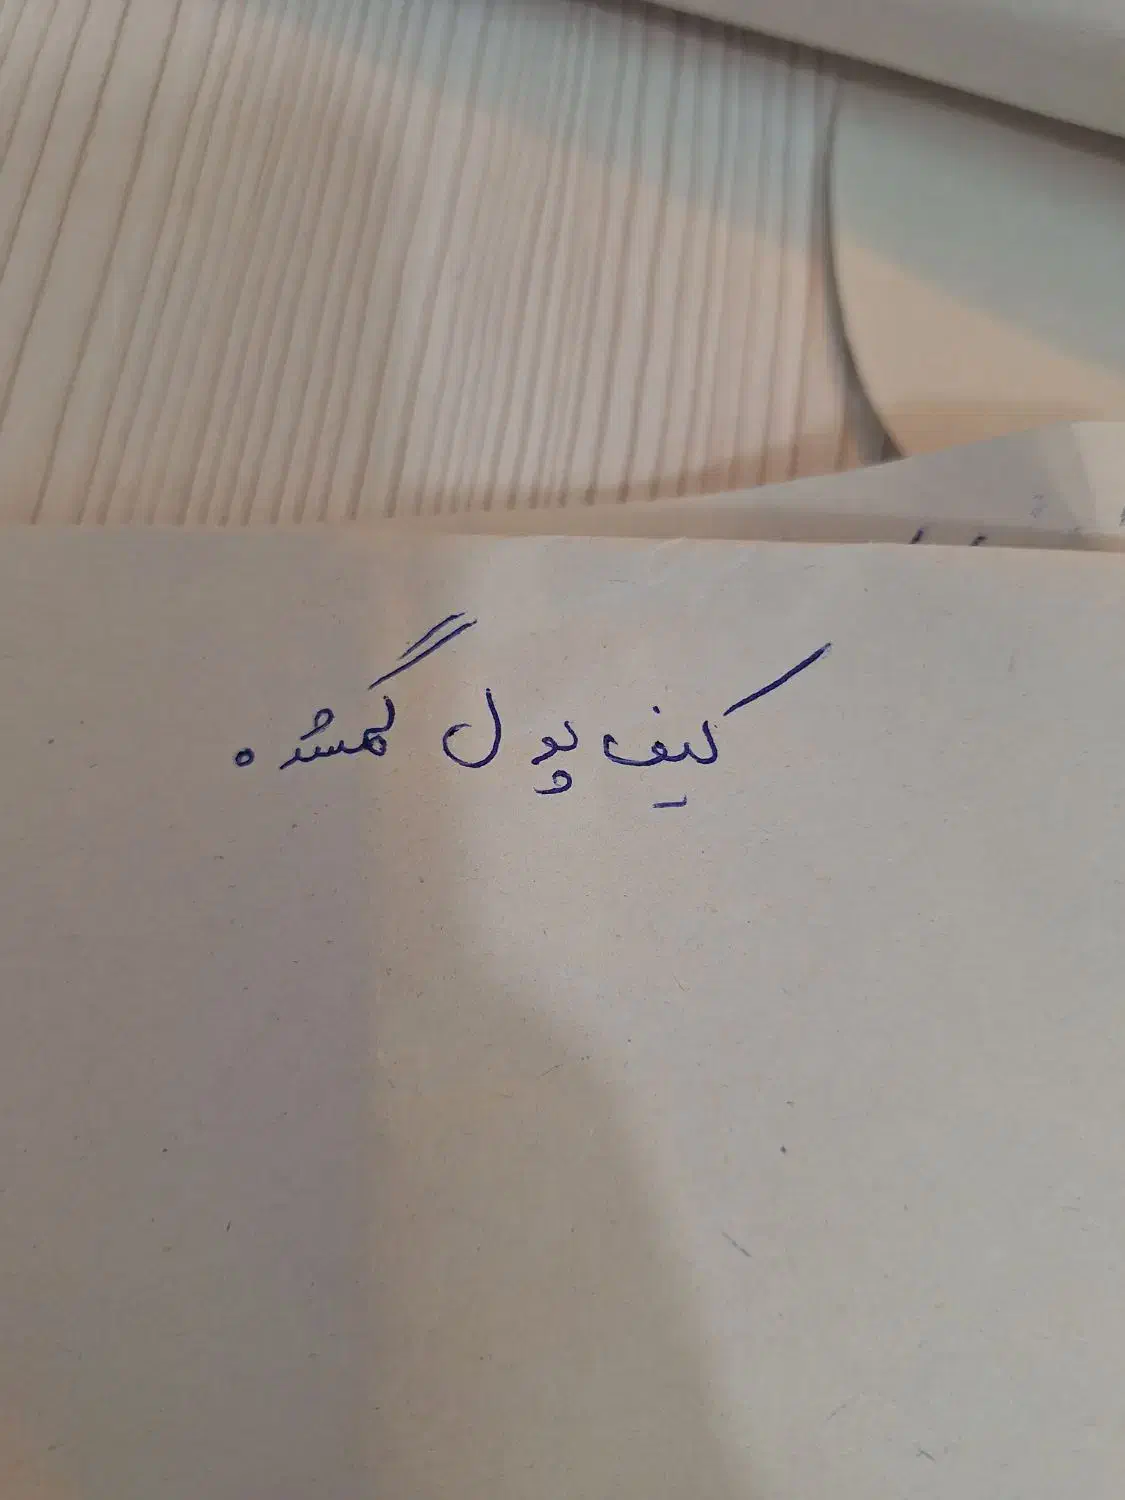 کیف پول گمشده